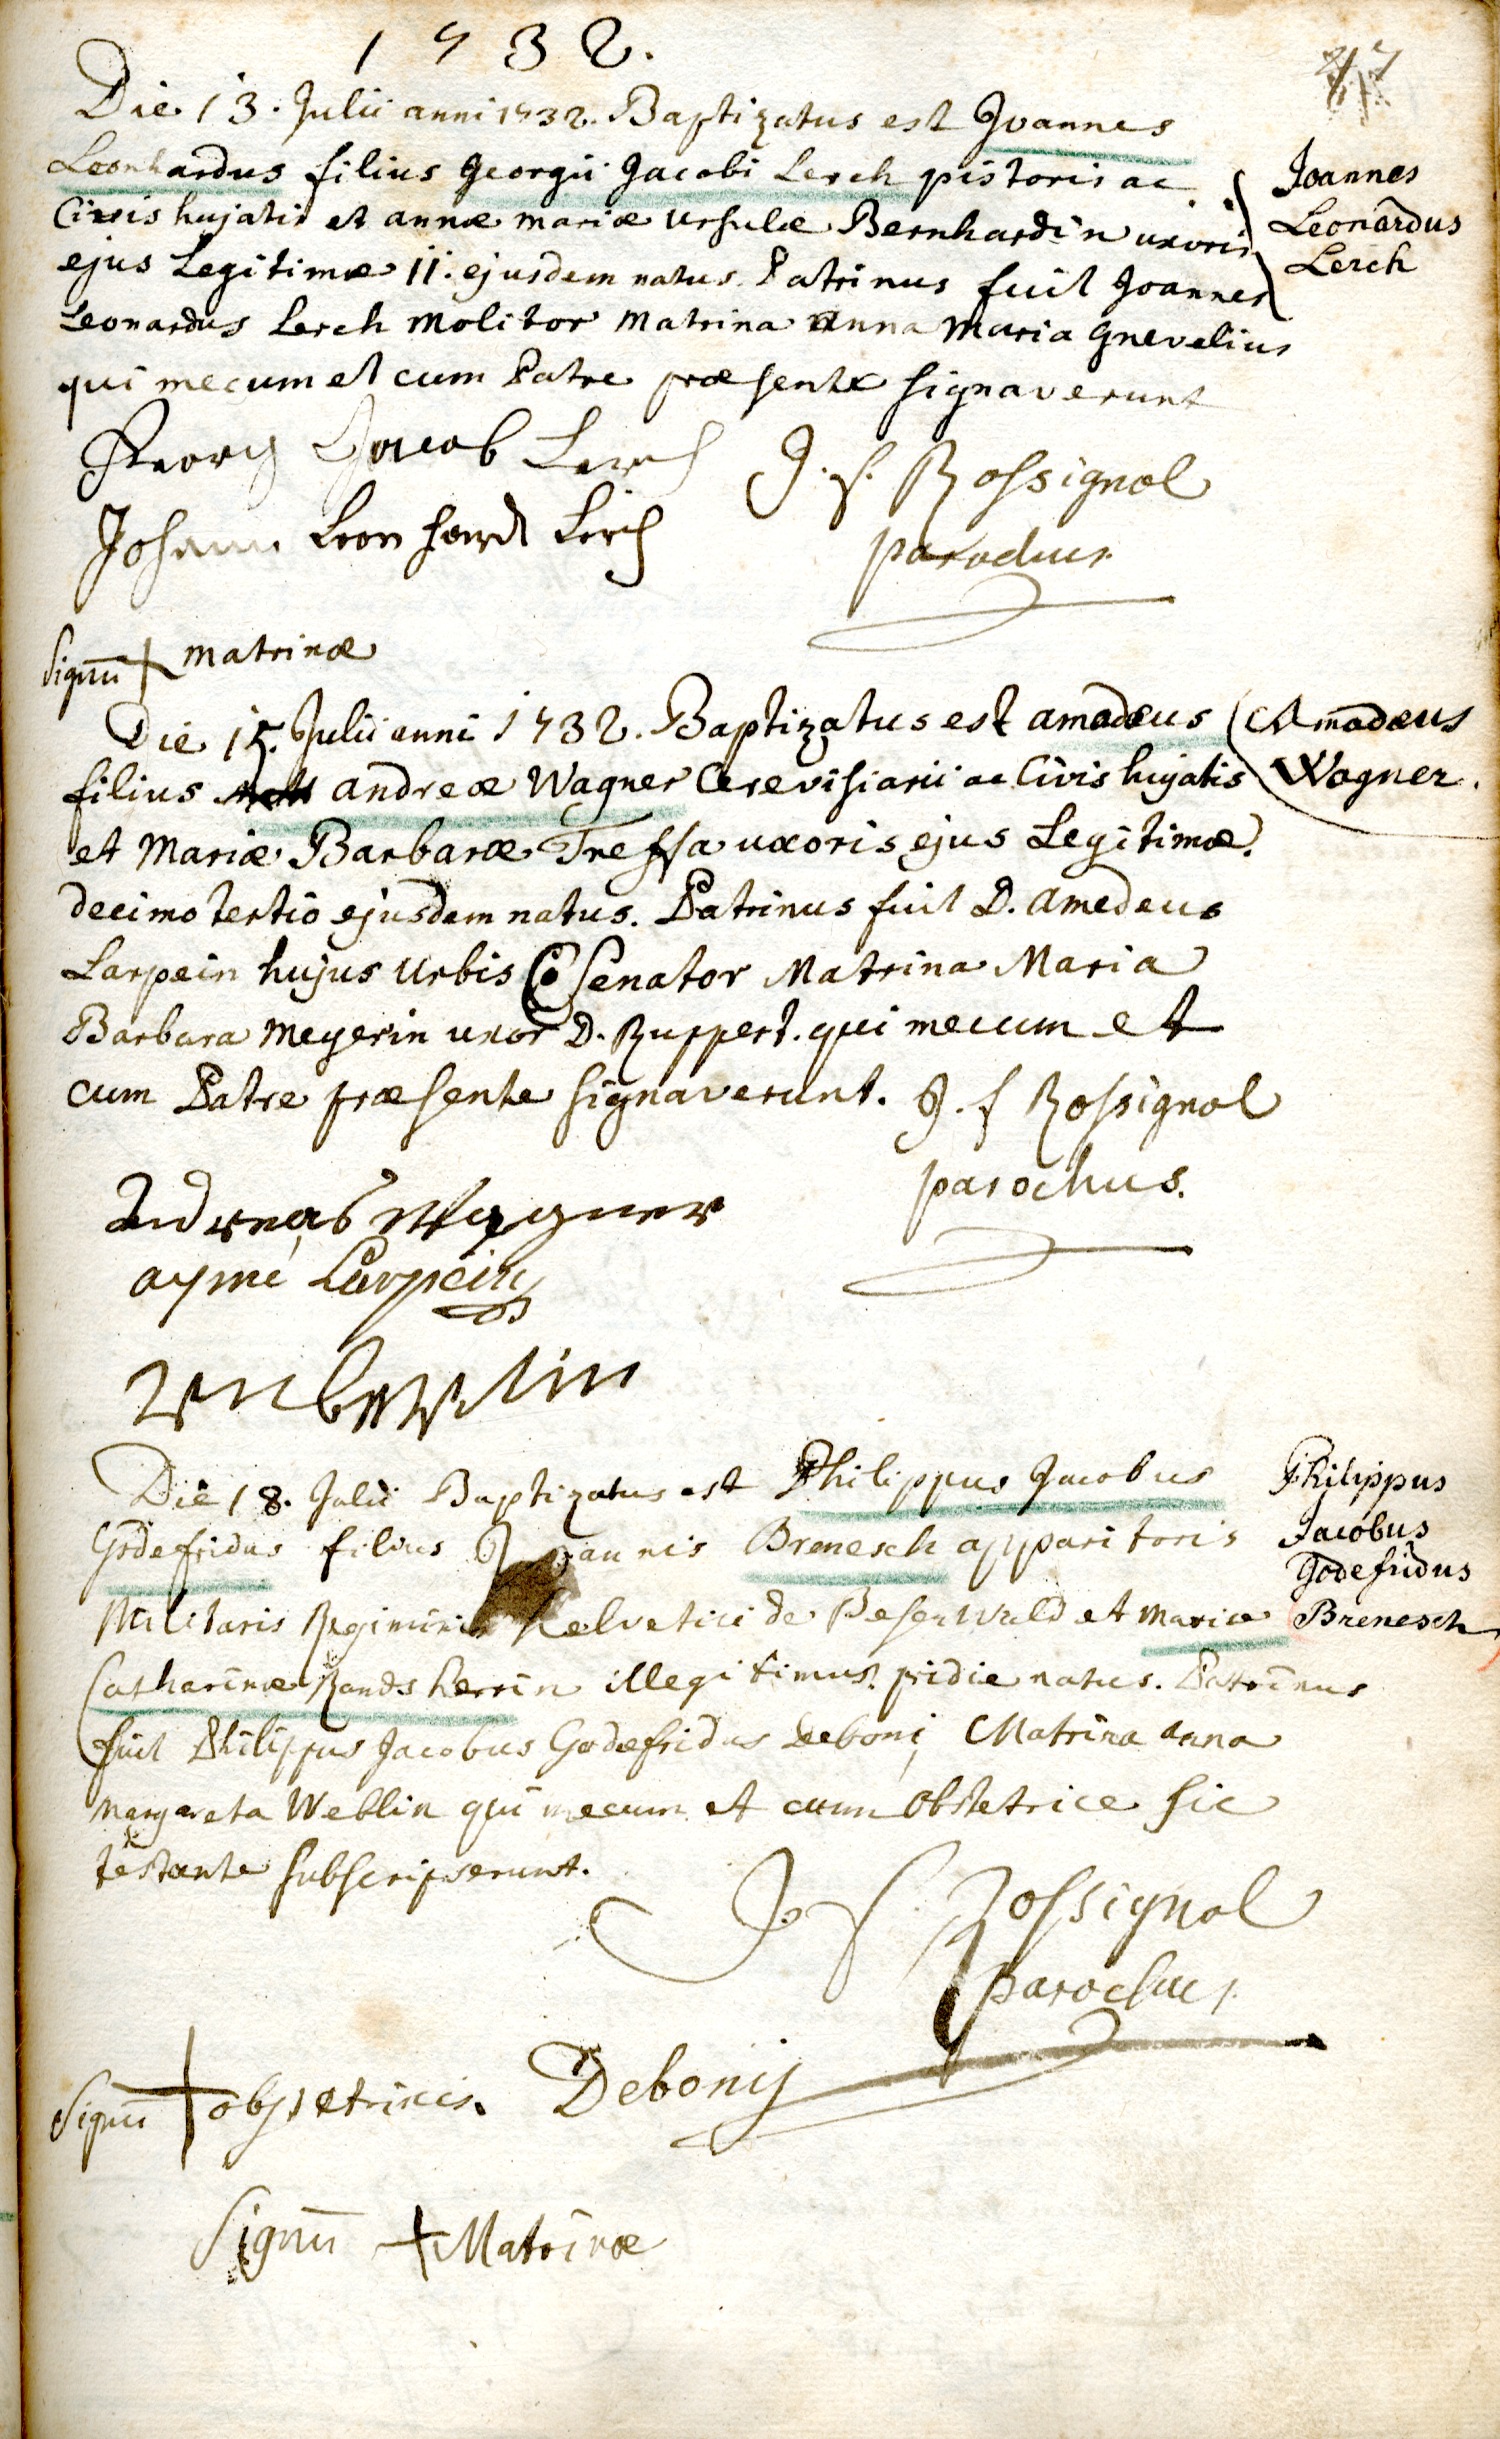 1732.
Die 13. Julii anni 1732. Baptizatus est Joannes
Leonhardus filius Georgii Jacobi Lerch pistoris ac
Civis hujatis et annæ mariæ Ursulæ Bernhardin uxoris
ejus Legitimæ 11. ejusdem natus. Patrinus fuit Joannes
Leonardus Lerch Molitor Matrina Anna Maria Gnevelius
qui mecum et cum Patre præsente signaverunt
Joannes
Leonardus
Lerch
Georg Jacob Lerch
J. f. Rossignol
Johann Leonhardt Lerch
parochus
Signū + matrinæ
Die 15. Julii anni 1732. Baptizatus est amadeus
filius andreæ Wagner Cerevisiarii ac Civis hujatis
et Mariæ Barbaræ Treffsa uxoris ejus Legitimæ.
decimo tertio ejusdem natus. Patrinus fuit D. Amedeus
Larpein hujus Urbis Senator Matrina Maria
Barbara Meyerin uxor D. Ruppert. qui mecum et
cum Patre præsente signaverunt.
Amadeus
Wagner.
J. f Rossignol
parochus.
Andreas Wagner
aymé Larpein
Die 18. Julii Baptizatus est Philippus Jacobus
Godefridus filius Joannis Brenesch apparitoris
Militaris Regiminis helvetici de Pesenwald et Mariæ
Catharinæ Randsherrin illegitimus. pridie natus. Patrinus
fuit Philippus Jacobus Godefridus Deboni, Matrina Anna
Margareta Weblin qui mecum et cum Obstetrice sic
testante subscripserunt.
Philippus
Jacobus
Godefridus
Brenesch
J. f. Rossignol
parochus
Signū + obstetricis.
Debonij
Signū + Matrinæ